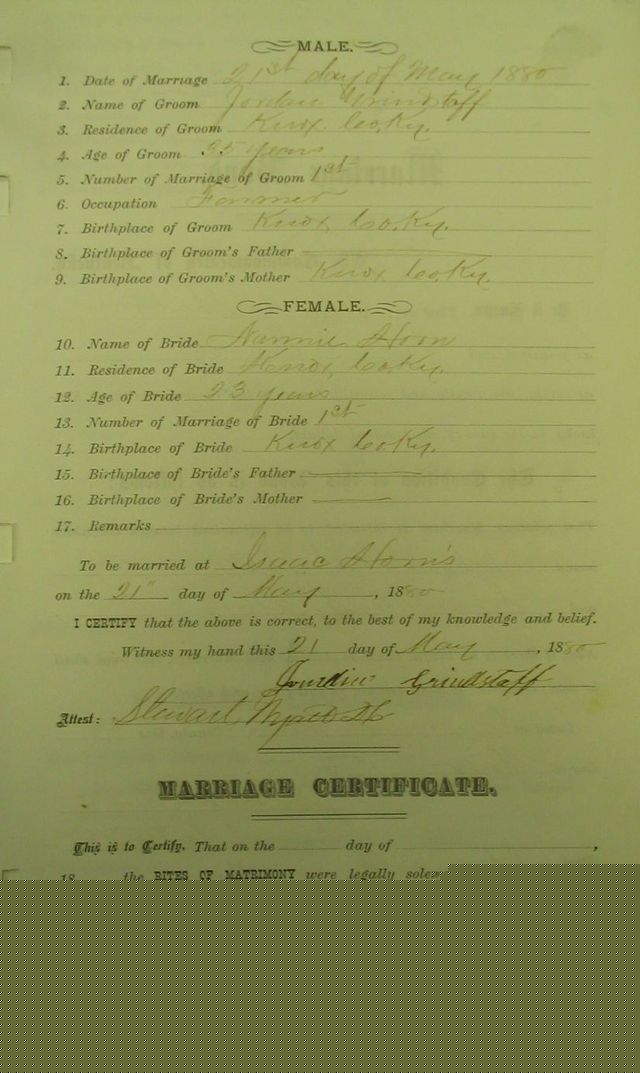 MALE.
1. Date of Marriage 21st day of May 1880
2. Name of Groom Jordan Grindstaff
3. Residence of Groom Knox Co. Ky.
4. Age of Groom 25 years
5. Number of Marriage of Groom 1st
6. Occupation Farmer
7. Birthplace of Groom Knox Co. Ky.
8. Birthplace of Groom's Father
9. Birthplace of Groom's Mother Knox Co. Ky.
FEMALE.
10. Name of Bride Nannie Horn
11. Residence of Bride Knox Co. Ky.
12. Age of Bride 23 years
13. Number of Marriage of Bride 1st
14. Birthplace of Bride Knox Co Ky.
15. Birthplace of Bride's Father
16. Birthplace of Bride's Mother
17. Remarks
To be married at Isaac Horn's
on the 21" day of May, 1880
I CERTIFY that the above is correct, to the best of my knowledge and belief.
Witness my hand this 21 day of May, 1880
Jourdin Grindstaff
Attest: Stewart
MARRIAGE CERTIFICATE.
This is to Certify. That on the day of ,
18 the RITES OF MATRIMONY were legally